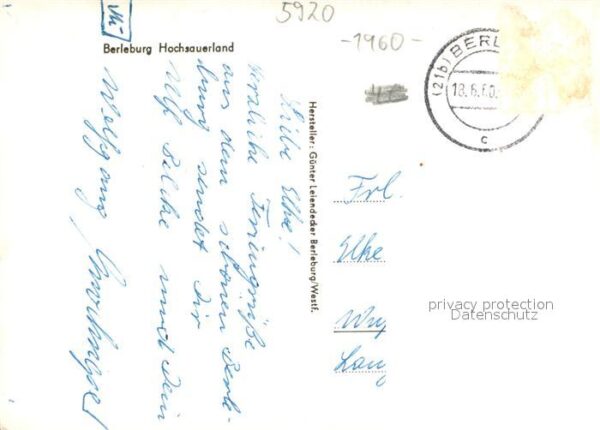 5920
-1960-
Berleburg Hochsauerland
(21b) BERL
18.6.60.
c
Hersteller: Günter Leiendecker Berleburg/Westf.
Liebe Elke!
Herzliche Feriengrüße
aus dem schönen Berle-
burg sendet Dir
und Dein
Wolfgang
Frl.
Elke
privacy protection
Datenschutz